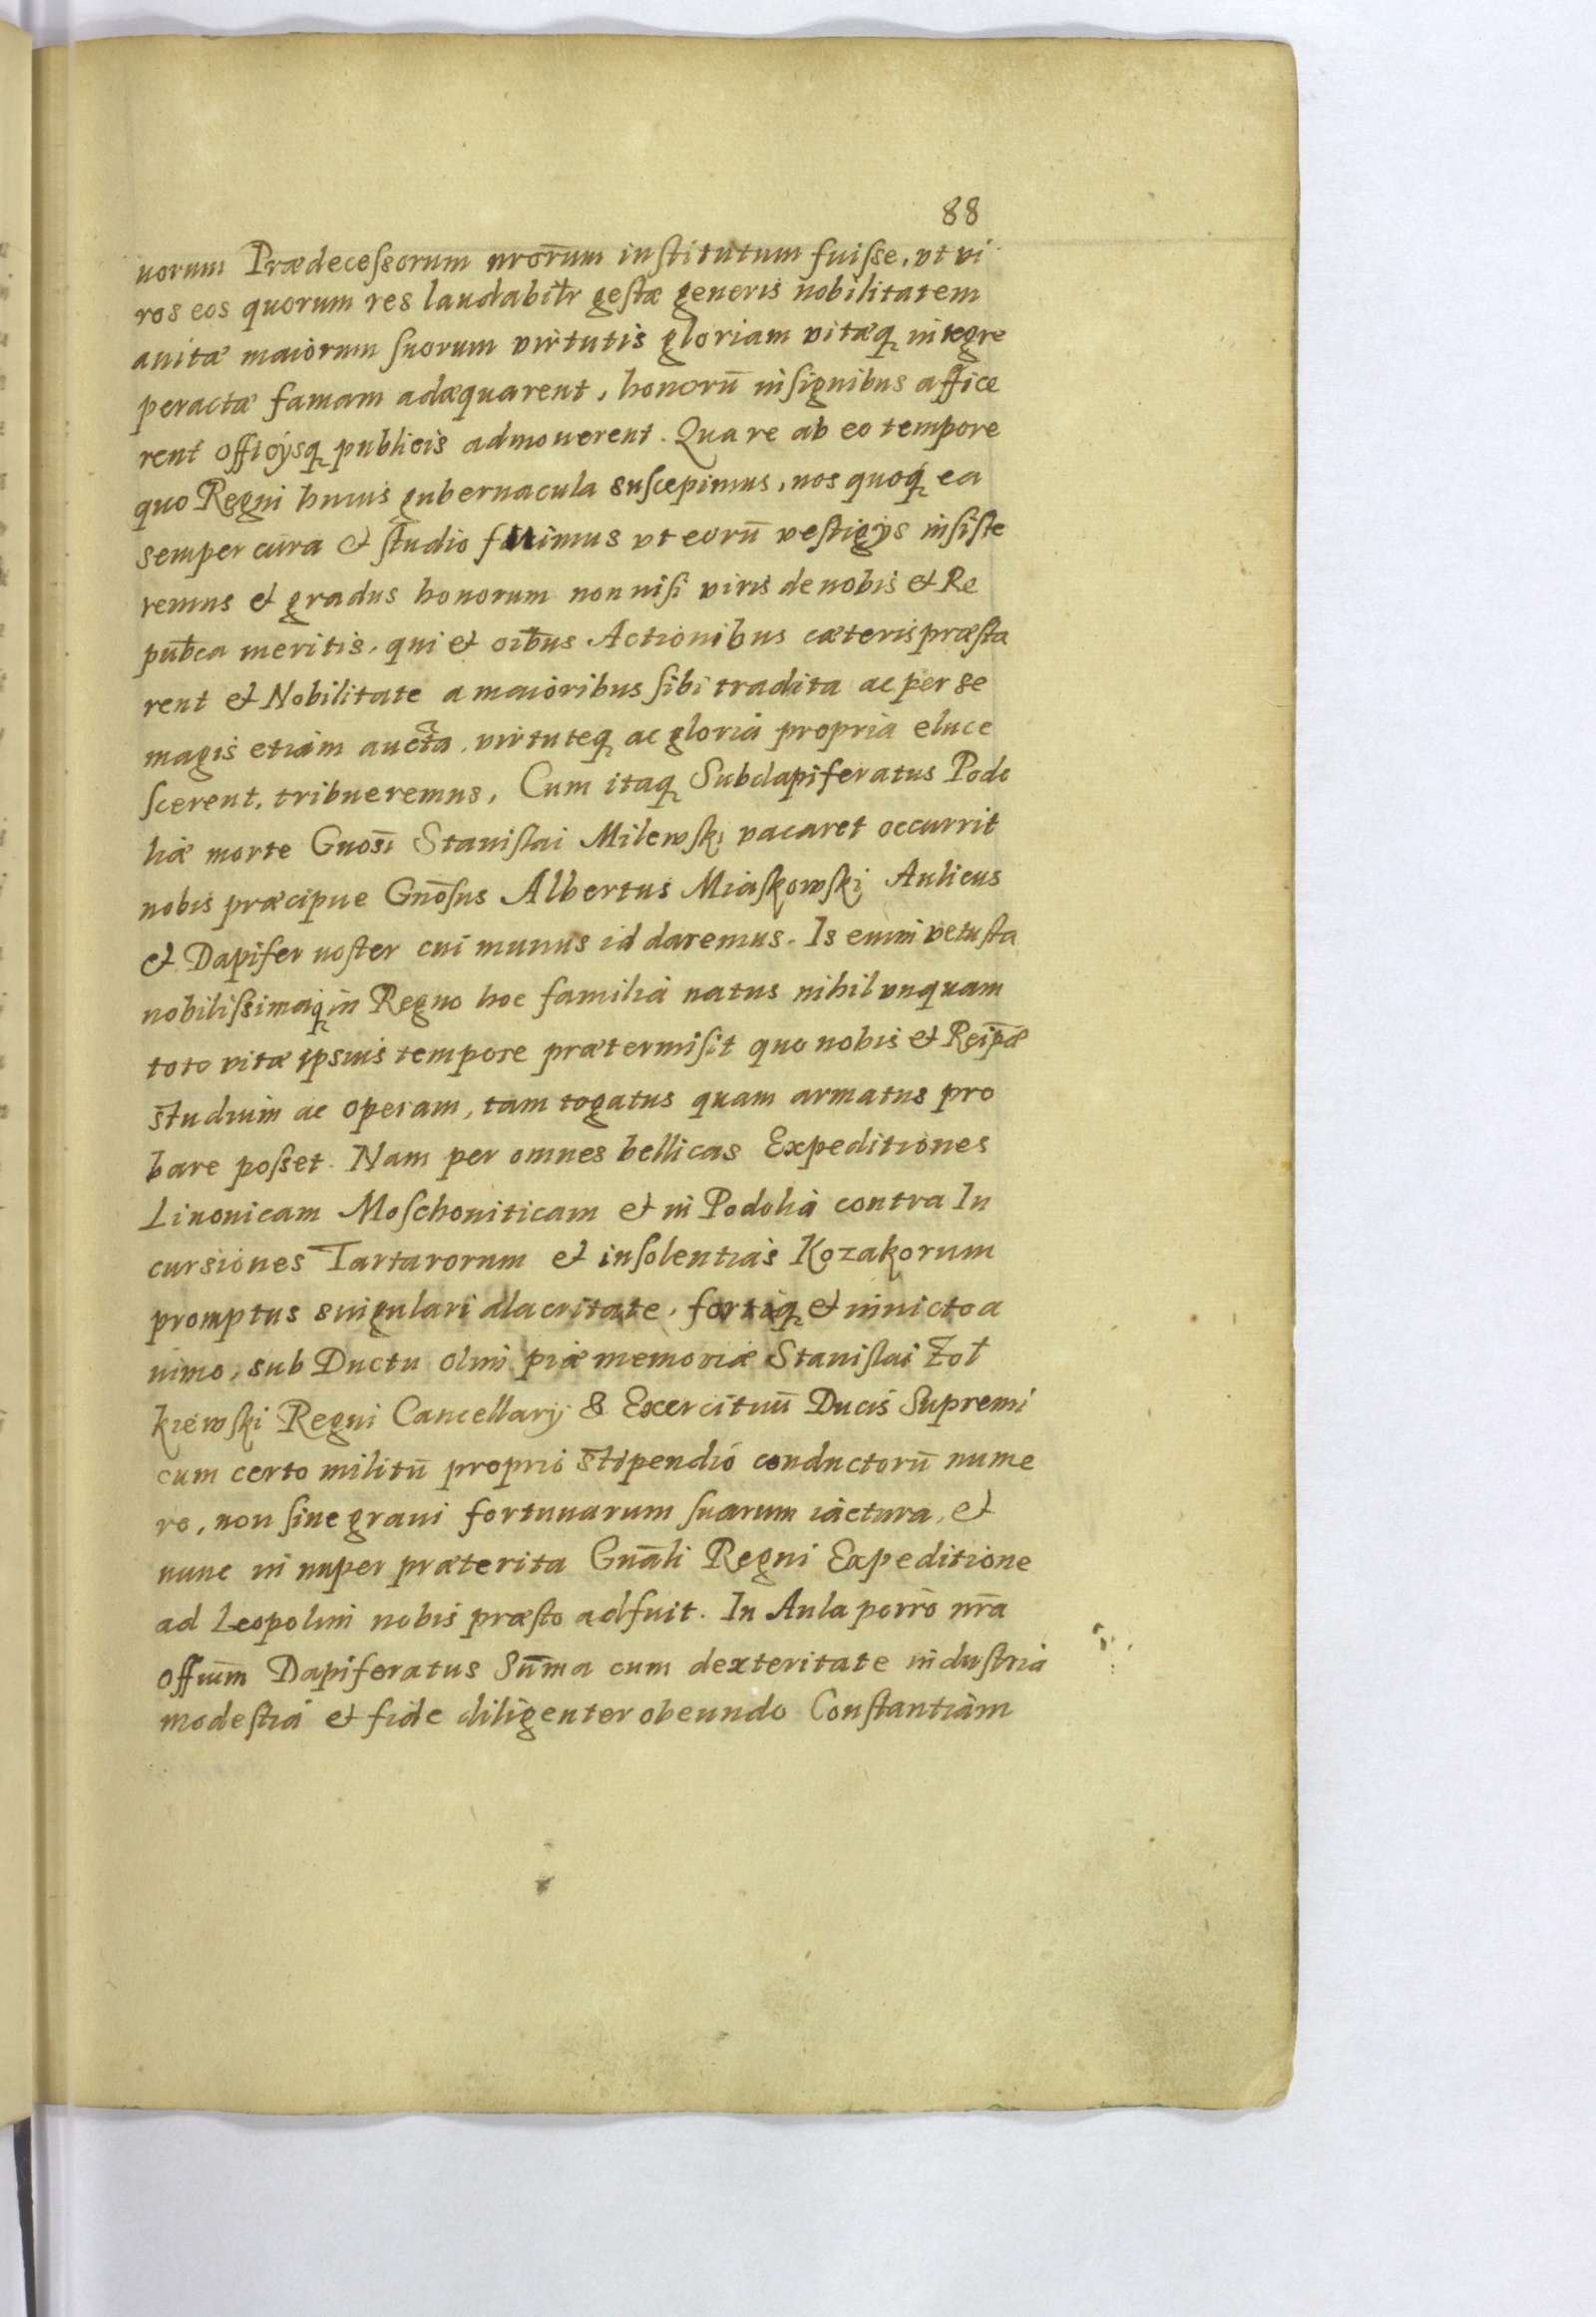 88
uorum Prædecessorum nrōrum institutum fuisse, vt vi
ros eos quorum res laudabilr̄ gestæ generis nobilitatem
auitæ maiorum suorum virtutis gloriam vitæq integre
peractæ famam adæquarent, honorū insignibus affice
rent officÿsq publicis admouerent. Quare ab eo tempore
quo Regni huius gubernacula suscepimus, nos quoq ea
semper cura et studio fuimus vt eorū vestigÿs insiste
remus et gradus honorum non nisi viris de nobis et Re
pub̄ca meritis, qui et oib̄us Actionibus cæteris præsta
rent et Nobilitate a maioribus sibi tradita ac per se
magis etiam aucta, virtuteq ac gloria propria eluce
scerent, tribueremus, Cum itaq Subdapiferatus Podo
liæ morte Gnosī Stanislai Milewski vacaret occurrit
nobis præcipue Gnōsus Albertus Miaskowski Aulicus
et Dapifer noster cui munus id daremus. Is enim vetusta
nobilissimaq in Regno hoc familia natus nihil vnquam
toto vitæ ipsius tempore prætermisit quo nobis et Reipǣ
studium ac operam, tam togatus quam armatus pro
bare posset. Nam per omnes bellicas Expeditiones
Liuonicam Moschouiticam et in Podolia contra In
cursiones Tartarorum et insolentias Kozakorum
promptus singulari alacritate, fortiq et inuicto a
nimo, sub Ductu olim piæ memoriæ Stanislai Zoł
kiewski Regni Cancellarÿ & Exercituū Ducis Supremi
cum certo militū proprio stipendio conductorū nume
ro, non sine graui fortunarum suarum iactura, et
nunc in nuper præterita Gnāli Regni Expeditione
ad Leopolim nobis præsto adfuit. In Aula porrò nrā
offium̄ Dapiferatus Sūma cum dexteritate industria
modestia et fide diligenter obeundo Constantiam